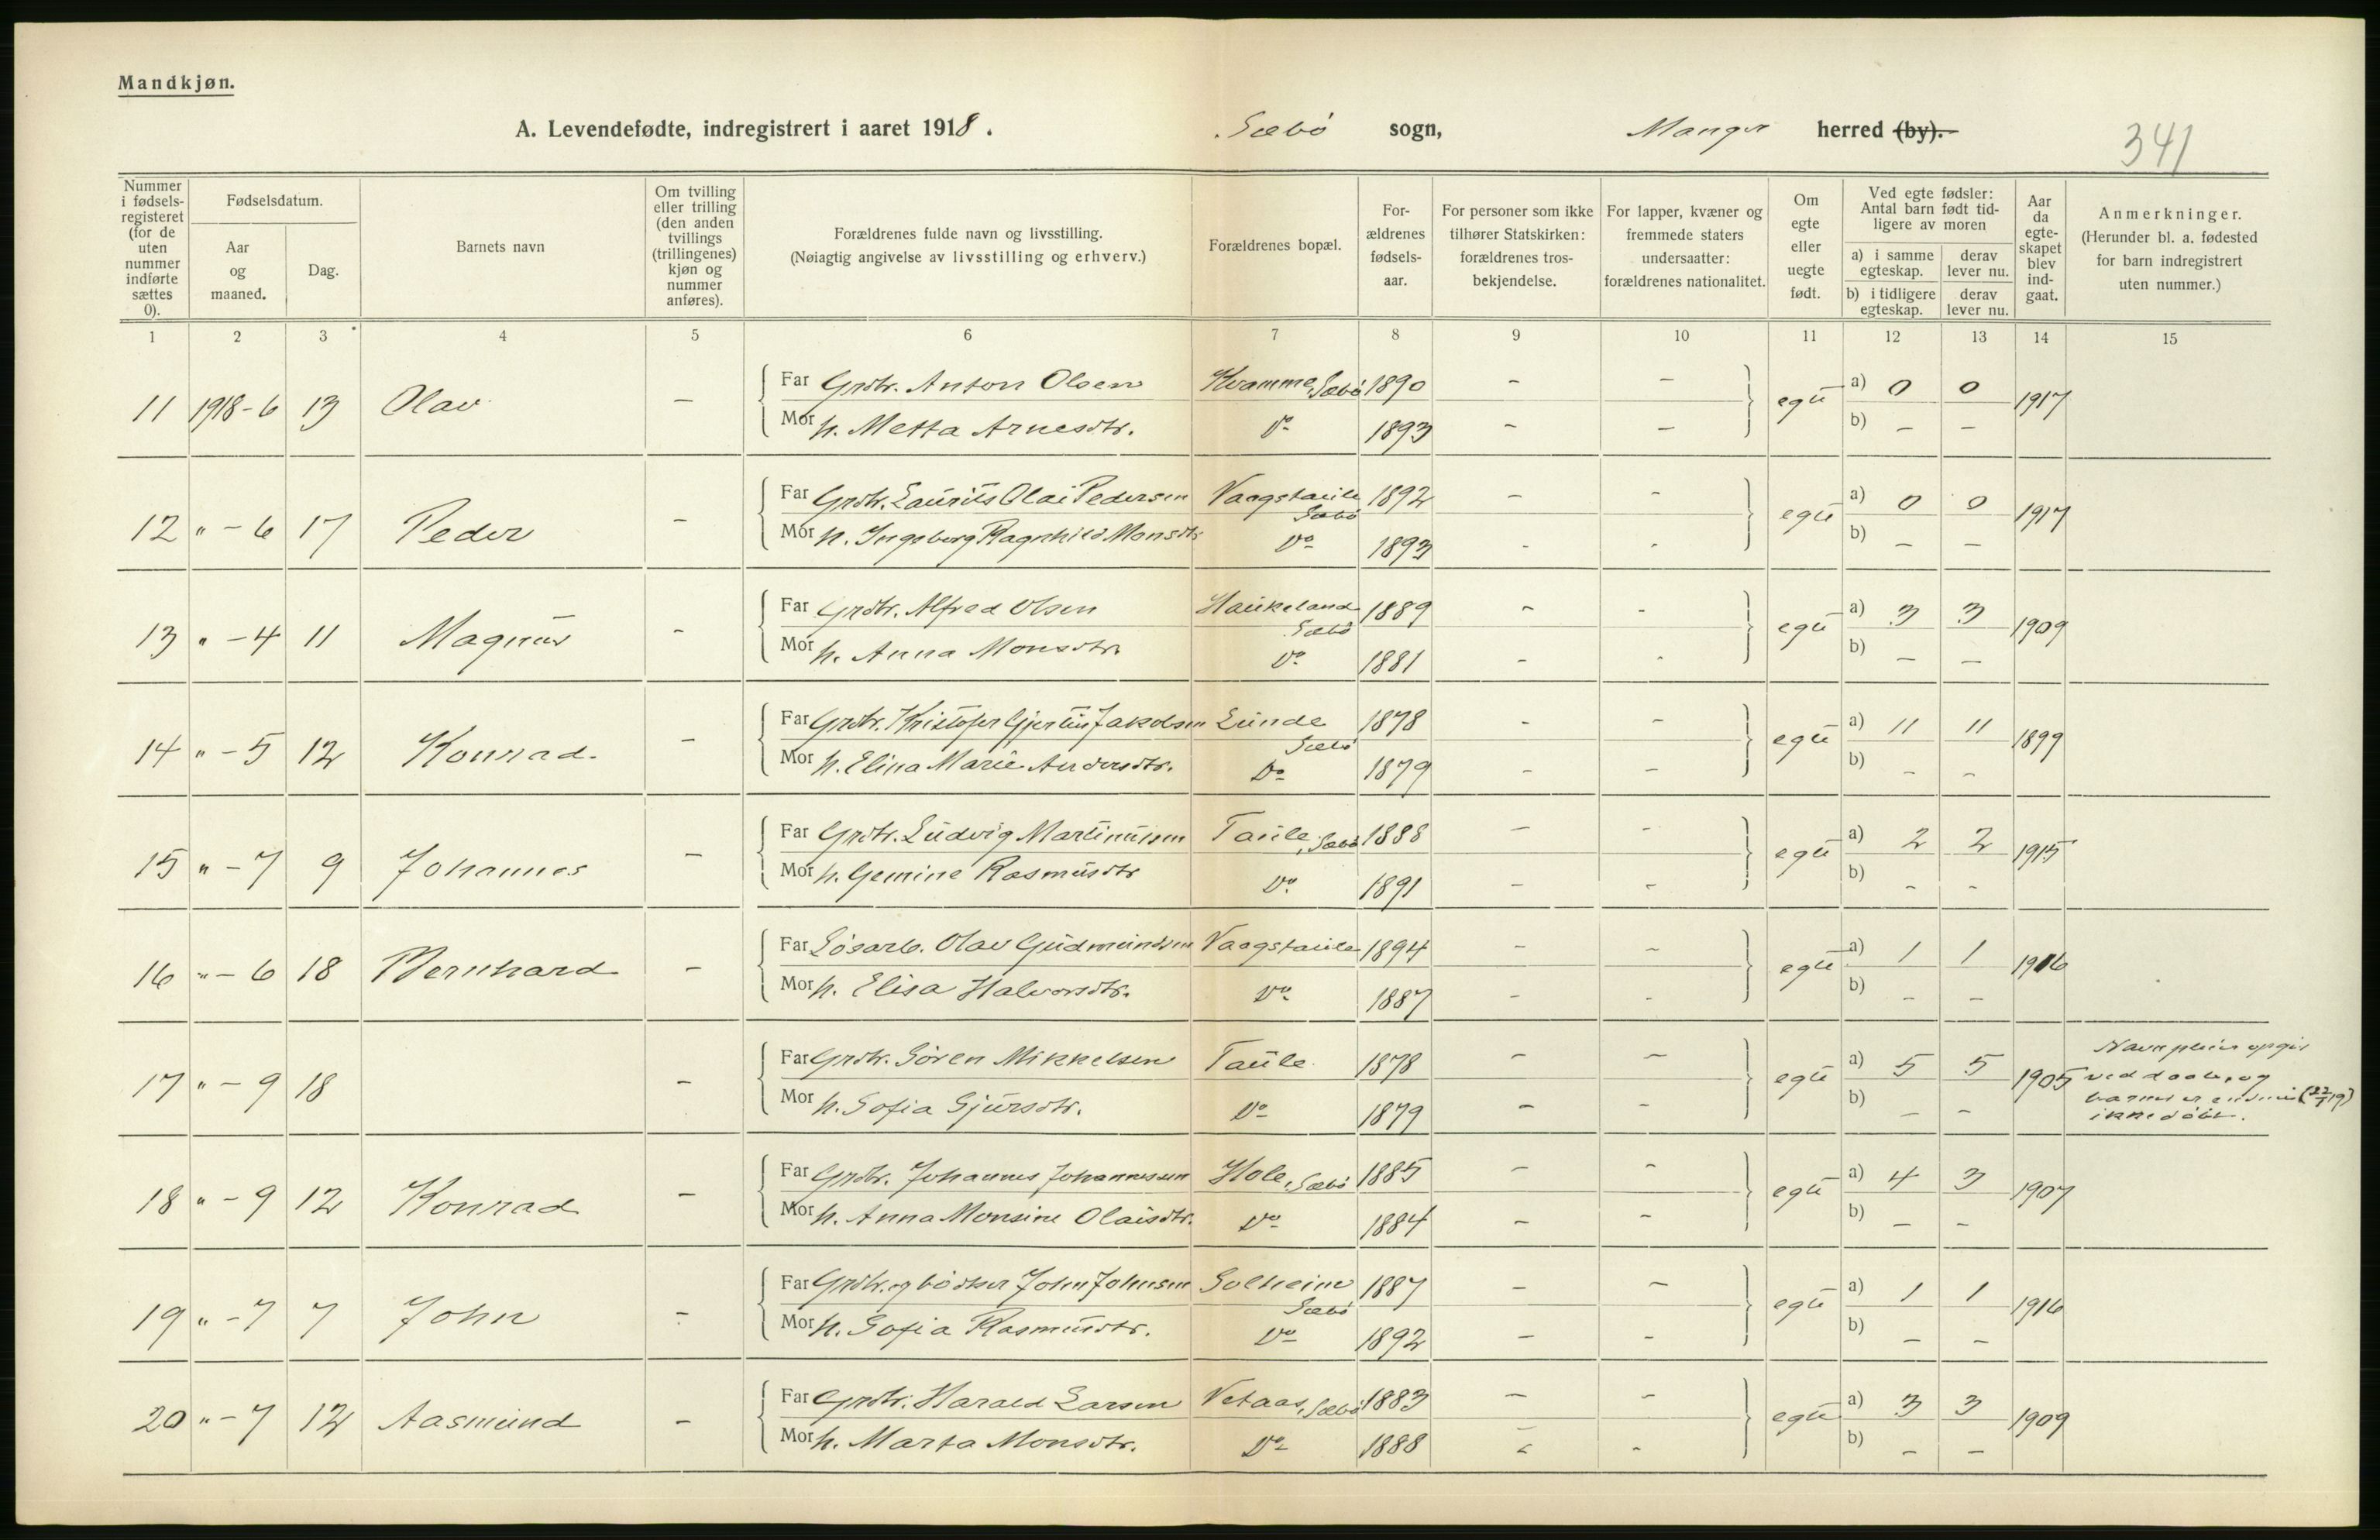 Mandkjøn.
A. Levendefødte, indregistrert i aaret 1918. Sæbö sogn, Manger herred (by).
341
Nummer i fødsels-registeret (for de uten nummer indførte sættes 0).
Fødselsdatum.
Aar og maaned.
Dag.
Barnets navn
Om tvilling eller trilling (den anden tvillings (trillingenes) kjøn og nummer anføres).
Forældrenes fulde navn og livsstilling.
(Nøiagtig angivelse av livsstilling og erhverv.)
Forældrenes bopæl.
For-ældrenes fødsels-aar.
For personer som ikke tilhører Statskirken: forældrenes tros-bekjendelse.
For lapper, kvæner og fremmede staters undersaatter: forældrenes nationalitet.
Om egte eller uegte født.
Ved egte fødsler: Antal barn født tid-ligere av moren
a) i samme egteskap.
derav lever nu.
b) i tidligere egteskap.
derav lever nu.
Aar da egte-skapet blev ind-gaat.
Anmerkninger.
(Herunder bl. a. fødested for barn indregistrert uten nummer.)
1 2 3 4 5 6 7 8 9 10 11 12 13 14 15
11 1918-6 13 Olav - Far Grdbr. Anton Olsen Kvamme, Sæbö 1890 - - egte a) 0 0 1917
Mor h. Metta Arnesdtr. Do 1893 - - b) - -
12 " - 6 17 Peder - Far Grdbr. Laurits Olai Pedersen Vaagstaule Sæbö 1892 - - egte a) 0 0 1917
Mor h. Ingeborg Ragnhild Monsdtr Do 1893 - - b) - -
13 " - 4 11 Magnus - Far Grdbr. Alfred Olsen Haukeland Sæbö 1889 - - egte a) 3 3 1909
Mor h. Anna Monsdtr. Do 1881 - - b) - -
14 " - 5 12 Konrad. - Far Grdbr. Kristofer Gjertin Jakobsen Lunde Sæbö 1878 - - egte a) 11 11 1899
Mor h. Elina Marie Andersdtr. Do 1879 - - b) - -
15 " - 7 9 Johannes - Far Grdbr. Ludvig Martinusen Taule, Sæbö 1888 - - egte a) 2 2 1915
Mor h. Gemine Rasmusdtr Do 1891 - - b) - -
16 " - 6 18 Bernhard - Far Løsarb. Olav Gudmundsen Vaagstaule 1894 - - egte a) 1 1 1916
Mor h. Elisa Halvorsdtr. Do 1887 - - b) - -
17 " - 9 18 - Far Grdbr. Sören Mikkelsen Taule 1878 - - egte a) 5 5 1905
Mor h. Sofia Sjursdtr. Do 1879 - - b) - -
Navn pleier opgis
ved daab, og
barnet er endnu
ikke döbt.
18 " - 9 12 Konrad - Far Grdbr. Johannes Johannessen Hole, Sæbö 1885 - - egte a) 4 3 1907
Mor h. Anna Monsine Olaisdtr. Do 1884 - - b) - -
19 " - 7 7 John - Far Grdbr. og bödker John Johnsen Solheim Sæbö 1887 - - egte a) 1 1 1916
Mor h. Sofia Rasmusdtr. Do 1892 - - b) - -
20 " - 7 12 Aasmund - Far Grdbr. Harald Larsen Vetaas, Sæbö 1883 - - egte a) 3 3 1909
Mor h. Marta Monsdtr. Do 1888 - - b) - -